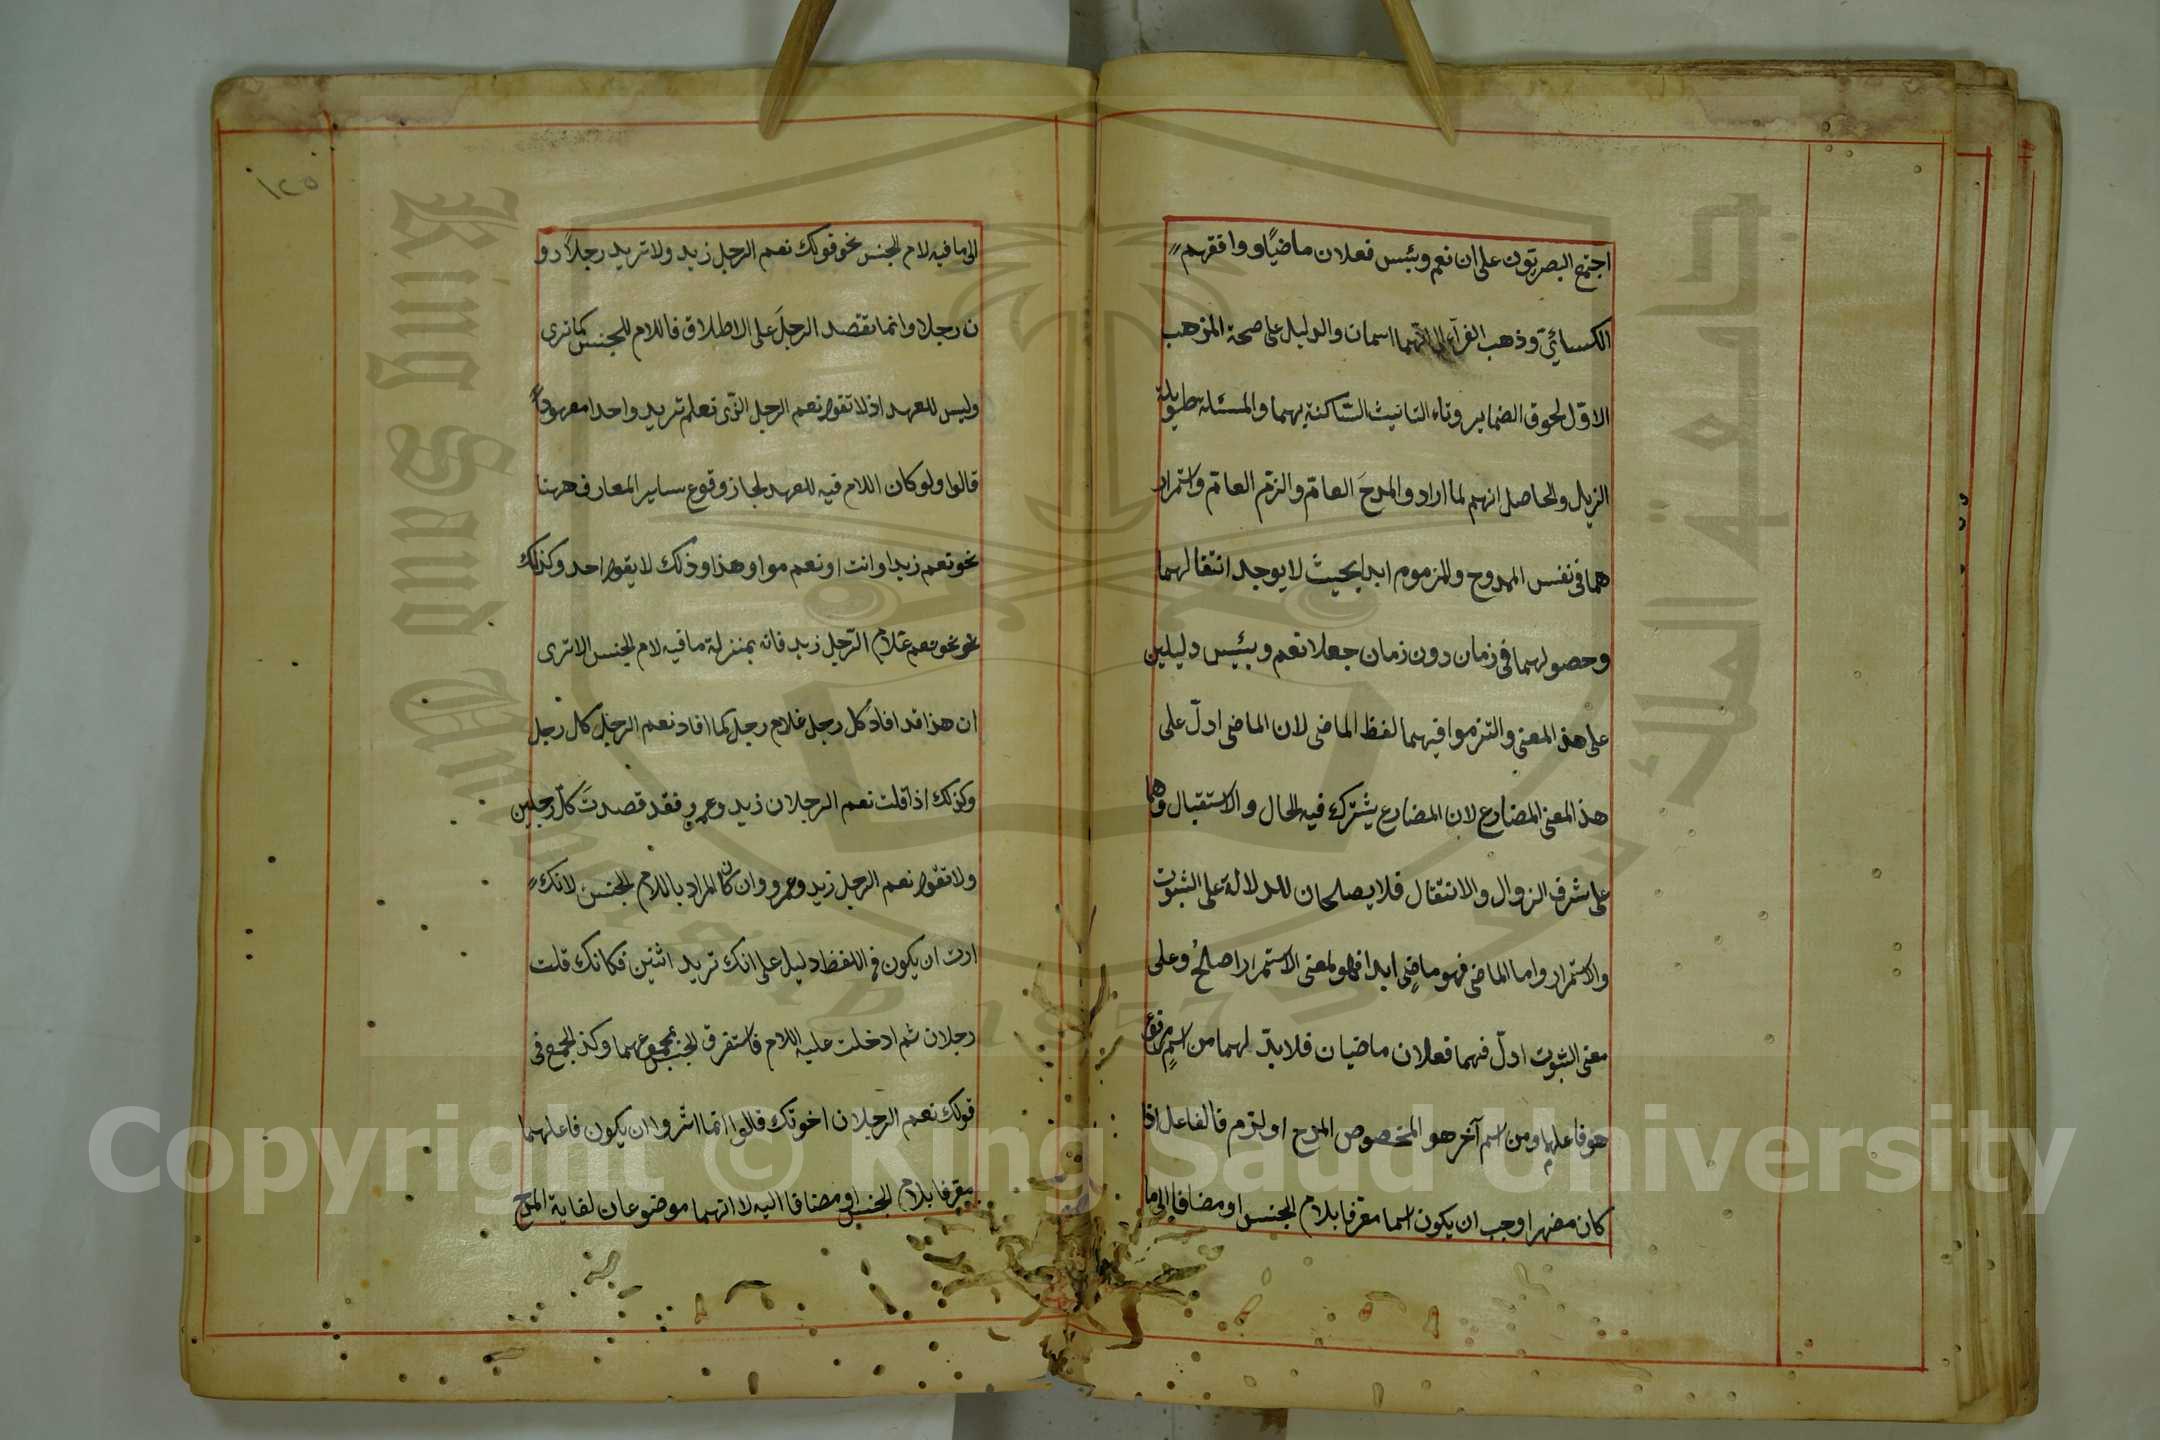 اجتمع البصريّون على ان نعم وبئس فعلان ماضيان ووافقهم
الكسائيّ وذهب الفرآء الى انّهما اسمان والدليل على صحة المذهب
الاوّل لحوق الضماير وتاء التانيث الساكنة بهما والمسئلة طويلة
الذيل والحاصل انهم لما ارادوا المدحَ العامّ والذم العامّ واستمرار
هما فى نفس الممدوح والمذموم ابدا بحيث لا يوجد انتقالهما
وحصولهما فى زمان دون زمان جعلا نعم وبئس دليلين
على هذا المعنى والتزموا فيهما لفظ الماضى لان الماضى ادلّ على
هذا المعنى المضارع لان المضارع يشترك فيه الحال والاستقبال وهما
على شرف الزوال والانتقال فلا يصلحان للدلالة على الثبوت
والاستمرار واما الماضى فهو ماضٍ ابدا فهو لمعنى الاستمرار اصلحُ وعلى
معنى الثبوت ادلّ فهما فعلان ماضيان فلا بدّ لهما من اسمٍ مرفوع
هو فاعلهما ومن اسم آخر هو المخصوص المدح او لذم فالفاعل اذا
كان مضهرا وجب ان يكون اسما معرفا بلام الجنس او مضافا الى ما
الى ما فيه لام الجنس نحو قولك نعم الرجل زيد ولا تريد رجلا دو
ن رجلا وانما تقصد الرجلَ على الاطلاق فاللام للجنس كما ترى
وليس للعهد اذ لا تقول نعم الرجل الذى تعلم تريد واحدا معهودا
قالوا ولو كان اللام فيه للعهد لجاز وقوع ساير المعارف ههنا
نحو نعم زيد او انت او نعم هو او هذا او ذلك لا يقول احد وكذلك
نحو نحو نعم غلام الرّجل زيد فانه بمنزلة ما فيه لام الجنس الا ترى
ان هذا قد افاد كل رجل غلام رجل كما افاد نعم الرجل كل رجل
وكذلك اذا قلت نعم الرجلان زيد وعمرو فقد قصدتَ كلّ رجلين
ولا تقول نعم الرجل زيد وعمرو وان كان المراد باللام الجنس لانك
اردت ان يكون فى اللفظ دليل على انك تريد اثنين فكانك قلت
رجلان ثم ادخلت عليه اللام فاستغرق الجنس بمجموعهما وكذا الجمع فى
قولك نعم الرجلان اخوتك قالوا انما اثروا ان يكون فاعلهما
معرفا بلام الجنس او مضافا اليه لا انهما موضوعان لغاية المدح
١٢٥
Copyright © King Saud University
King Saud University
جامعة الملك سعود
1957